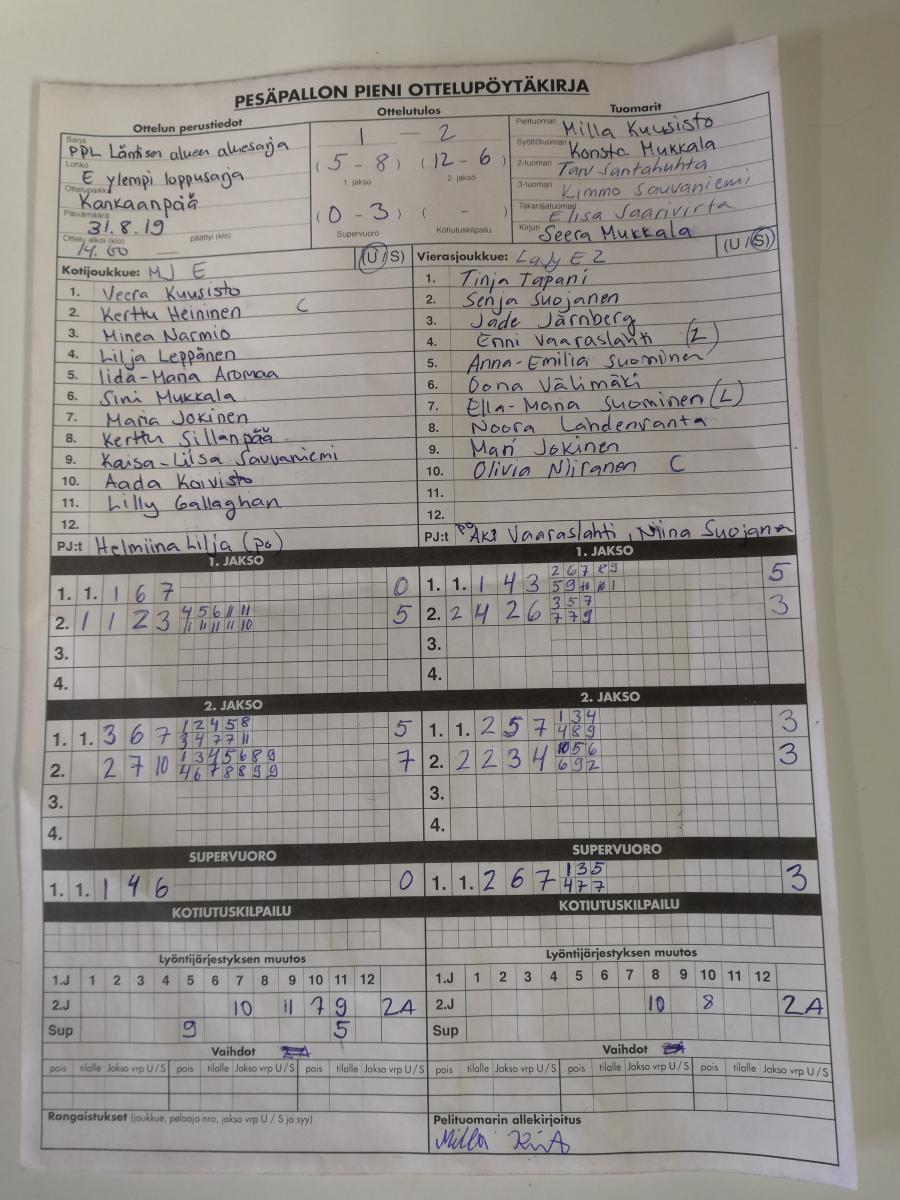 PESÄPALLON PIENI OTTELUPÖYTÄKIRJA
Ottelun perustiedot
Sarja PPL Läntisen alueen aluesarja
Lohko E ylempi loppusarja
Ottelupaikka Kankaanpää
Päivämäärä 31.8.19
Ottelu alkoi (klo) 14.00 päättyi (klo) —
Ottelutulos
1 — 2
(5 - 8) (12 - 6)
1. jakso 2. jakso
(0 - 3) ( - )
Supervuoro Kotiutuskilpailu
Tuomarit
Pelituomari Milla Kuusisto
Syöttötuomari Konsta Mukkala
2-tuomari Taru Santahuhta
3-tuomari Kimmo Sauvaniemi
Takarajatuomari Elisa Saarivirta
Kirjuri Seera Mukkala
Kotijoukkue: MJ E (U/S)
1. Veera Kuusisto
2. Kerttu Heininen C
3. Minea Narmio
4. Lilja Leppänen
5. Iida-Maria Aromaa
6. Sini Mukkala
7. Maria Jokinen
8. Kerttu Sillanpää
9. Kaisa-Liisa Sauvaniemi
10. Aada Koivisto
11. Lilly Gallaghan
12.
PJ:t Helmiina Lilja (po)
Vierasjoukkue: Lady E2 (U/S)
1. Tinja Tapani
2. Senja Suojanen
3. Jade Järnberg
4. Enni Vaaraslahti
5. Anna-Emilia Suominen
6. Oona Välimäki
7. Ella-Maria Suominen (L)
8. Noora Lahdenranta
9. Mari Jokinen
10. Olivia Niiranen C
11.
12.
PJ:t PO Aki Vaaraslahti, Niina Suojanen
1. JAKSO
1. 1. 1 6 7 0
2. 1 1 2 3 4 5 6 11 11 5
11 11 11 11 10
3.
4.
1. JAKSO
1. 1. 1 4 3 2 6 7 8 9 5
5 9 10 10 1
2. 2 4 2 6 3 5 7 3
7 7 9
3.
4.
2. JAKSO
1. 1. 3 6 7 1 2 4 5 8 5
3 4 7 7 11
2. 2 7 10 1 3 4 5 6 8 9 7
4 6 7 8 8 9 9
3.
4.
2. JAKSO
1. 1. 2 5 7 1 3 4 3
4 8 9
2. 2 2 3 4 10 5 6 3
6 9 2
3.
4.
SUPERVUORO
1. 1. 1 4 6 0
SUPERVUORO
1. 1. 2 6 7 1 3 5 3
4 7 7
KOTIUTUSKILPAILU
Lyöntijärjestyksen muutos
1.J 1 2 3 4 5 6 7 8 9 10 11 12
2.J 10 11 7 9 2A
Sup 9 5
Vaihdot
pois tilalle Jakso vrp U/S pois tilalle Jakso vrp U/S pois tilalle Jakso vrp U/S
Rangaistukset (joukkue, pelaaja nro, jakso vrp U / S ja syy)
KOTIUTUSKILPAILU
Lyöntijärjestyksen muutos
1.J 1 2 3 4 5 6 7 8 9 10 11 12
2.J 10 8 2A
Sup
Vaihdot
pois tilalle Jakso vrp U/S pois tilalle Jakso vrp U/S pois tilalle Jakso vrp U/S
Pelituomarin allekirjoitus
Milla